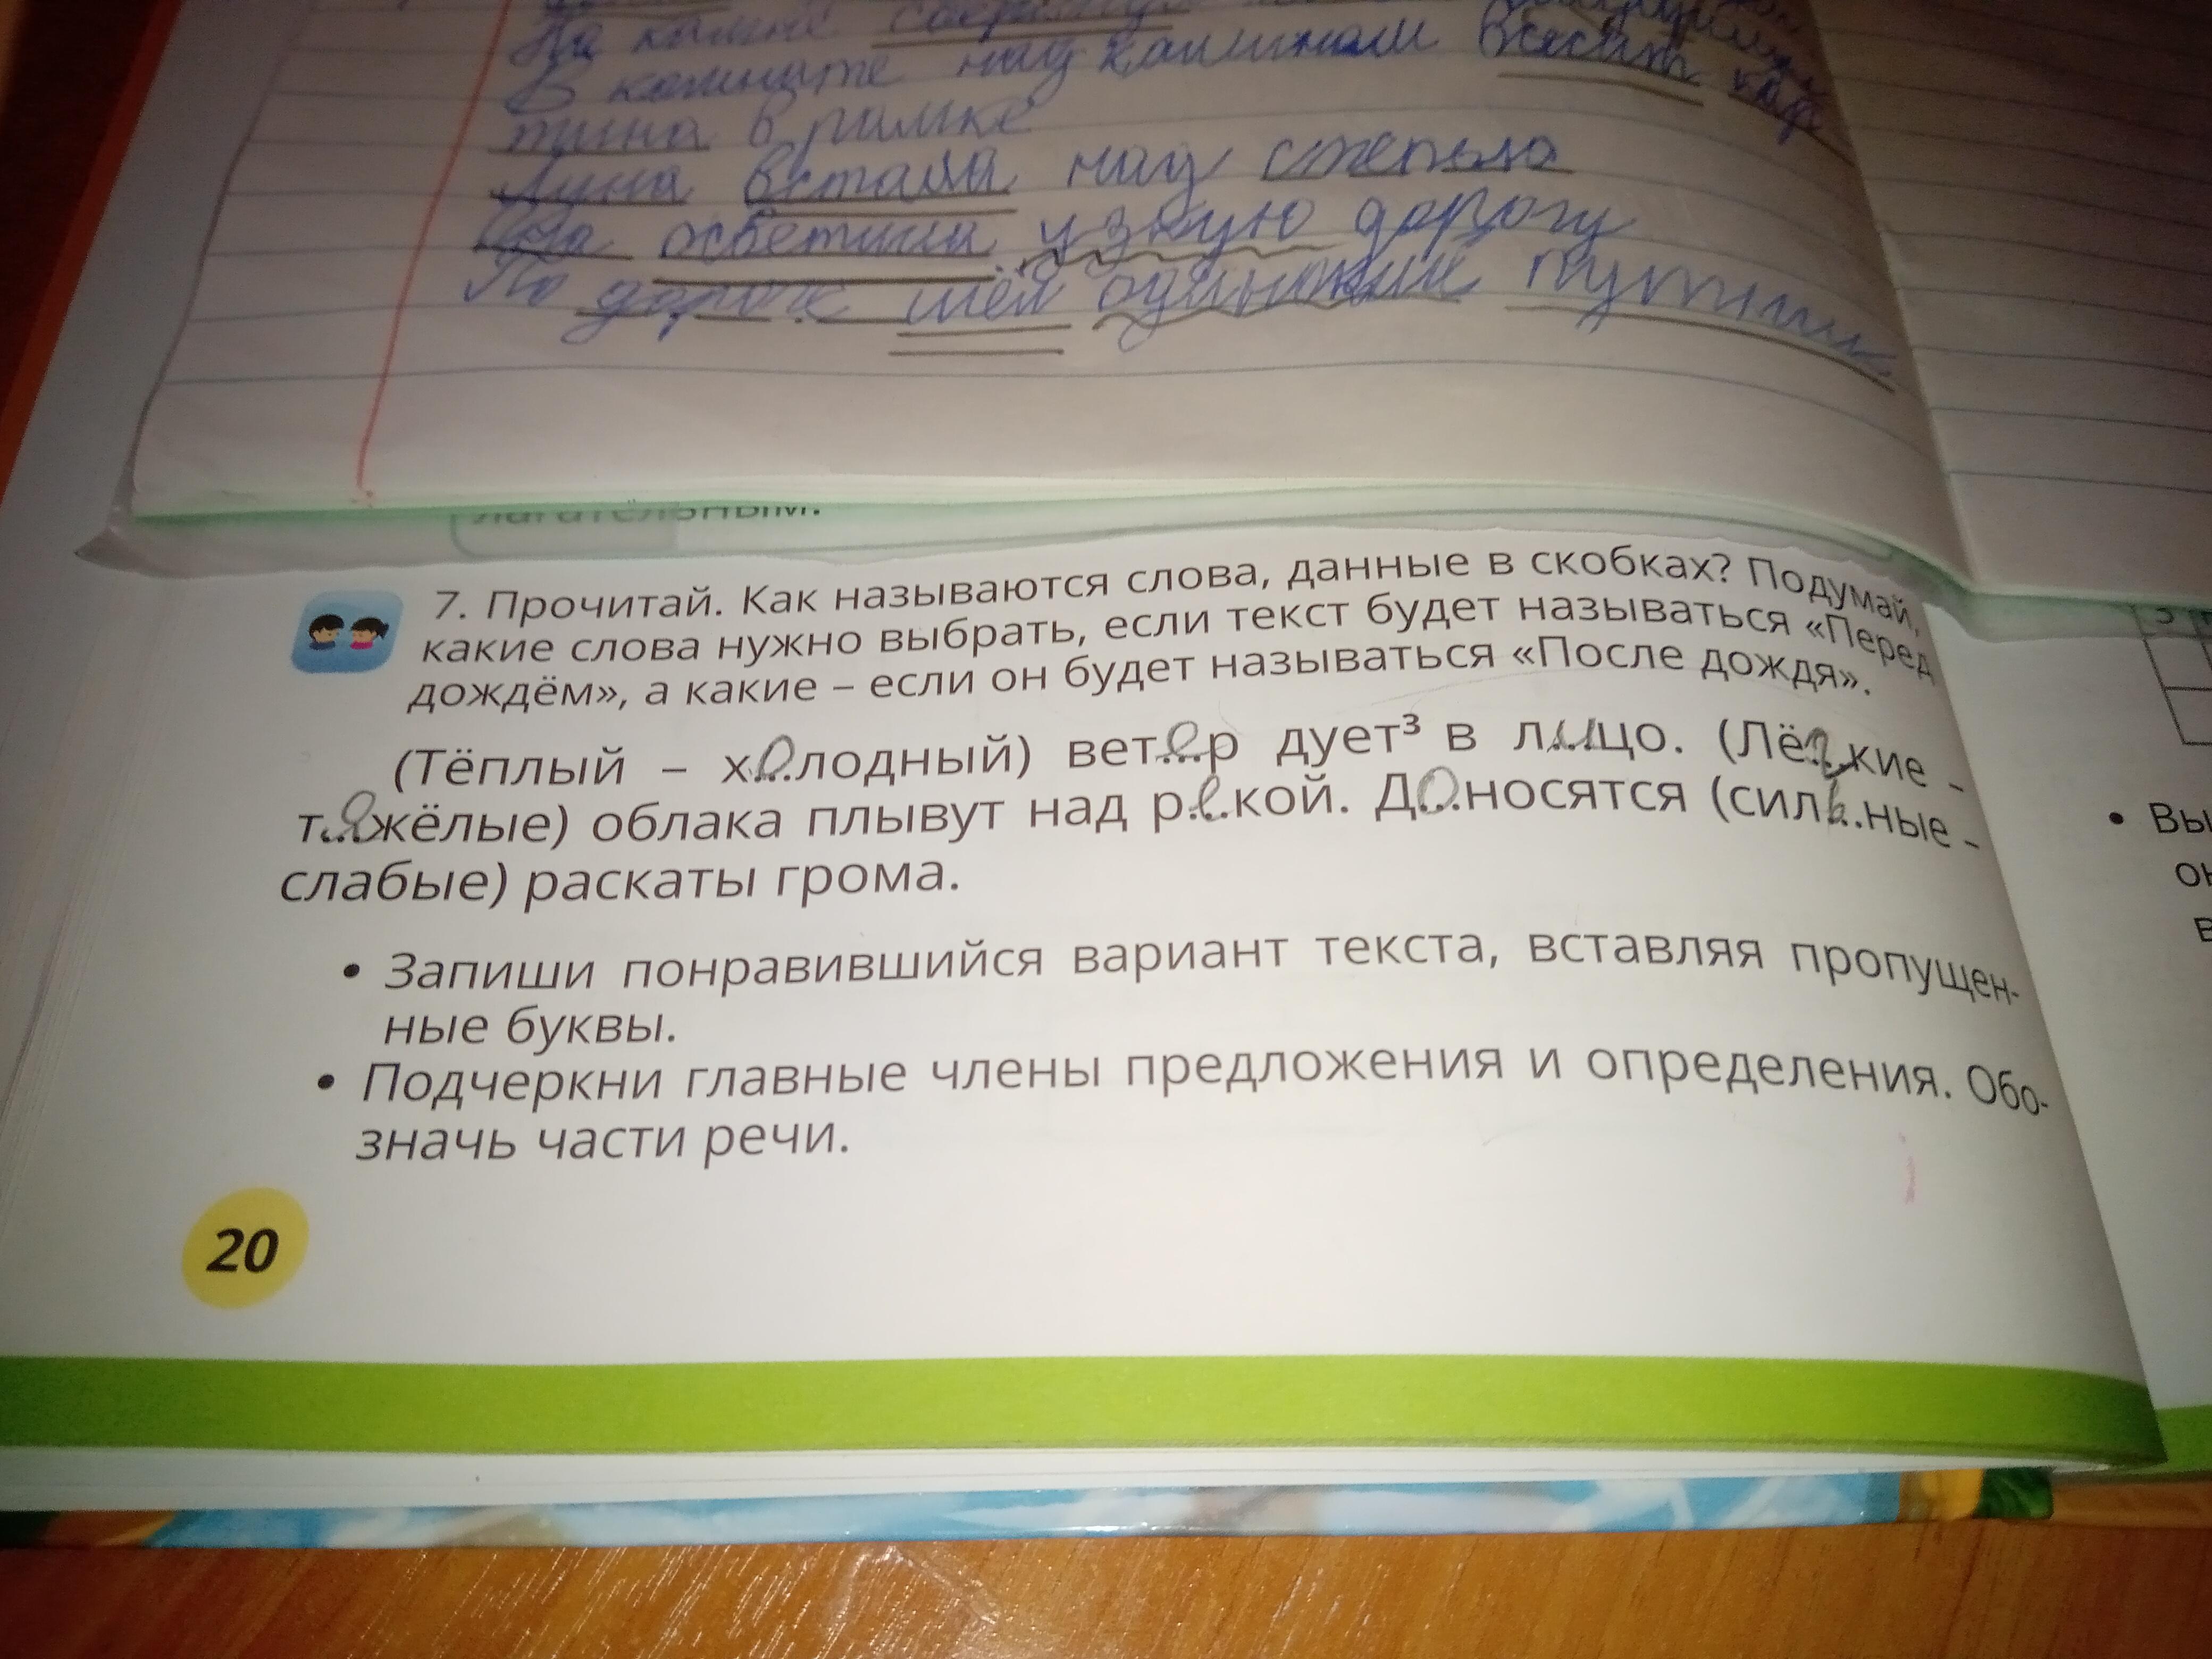 На камне
В комнате над камином висит кар
тина в рамке
Луна встала над степью
Она осветила узкую дорогу
По дороге шёл одинокий путник
лагательным.
7. Прочитай. Как называются слова, данные в скобках? Подумай,
какие слова нужно выбрать, если текст будет называться «Перед
дождём», а какие – если он будет называться «После дождя».
(Тёплый – х..о..лодный) вет..е..р дует³ в л..и..цо. (Лё..г..кие –
т..я..жёлые) облака плывут над р..е..кой. Д..о..носятся (сил..ь..ные –
слабые) раскаты грома.
• Запиши понравившийся вариант текста, вставляя пропущен-
ные буквы.
• Подчеркни главные члены предложения и определения. Обо-
значь части речи.
20
• Вы
он
в